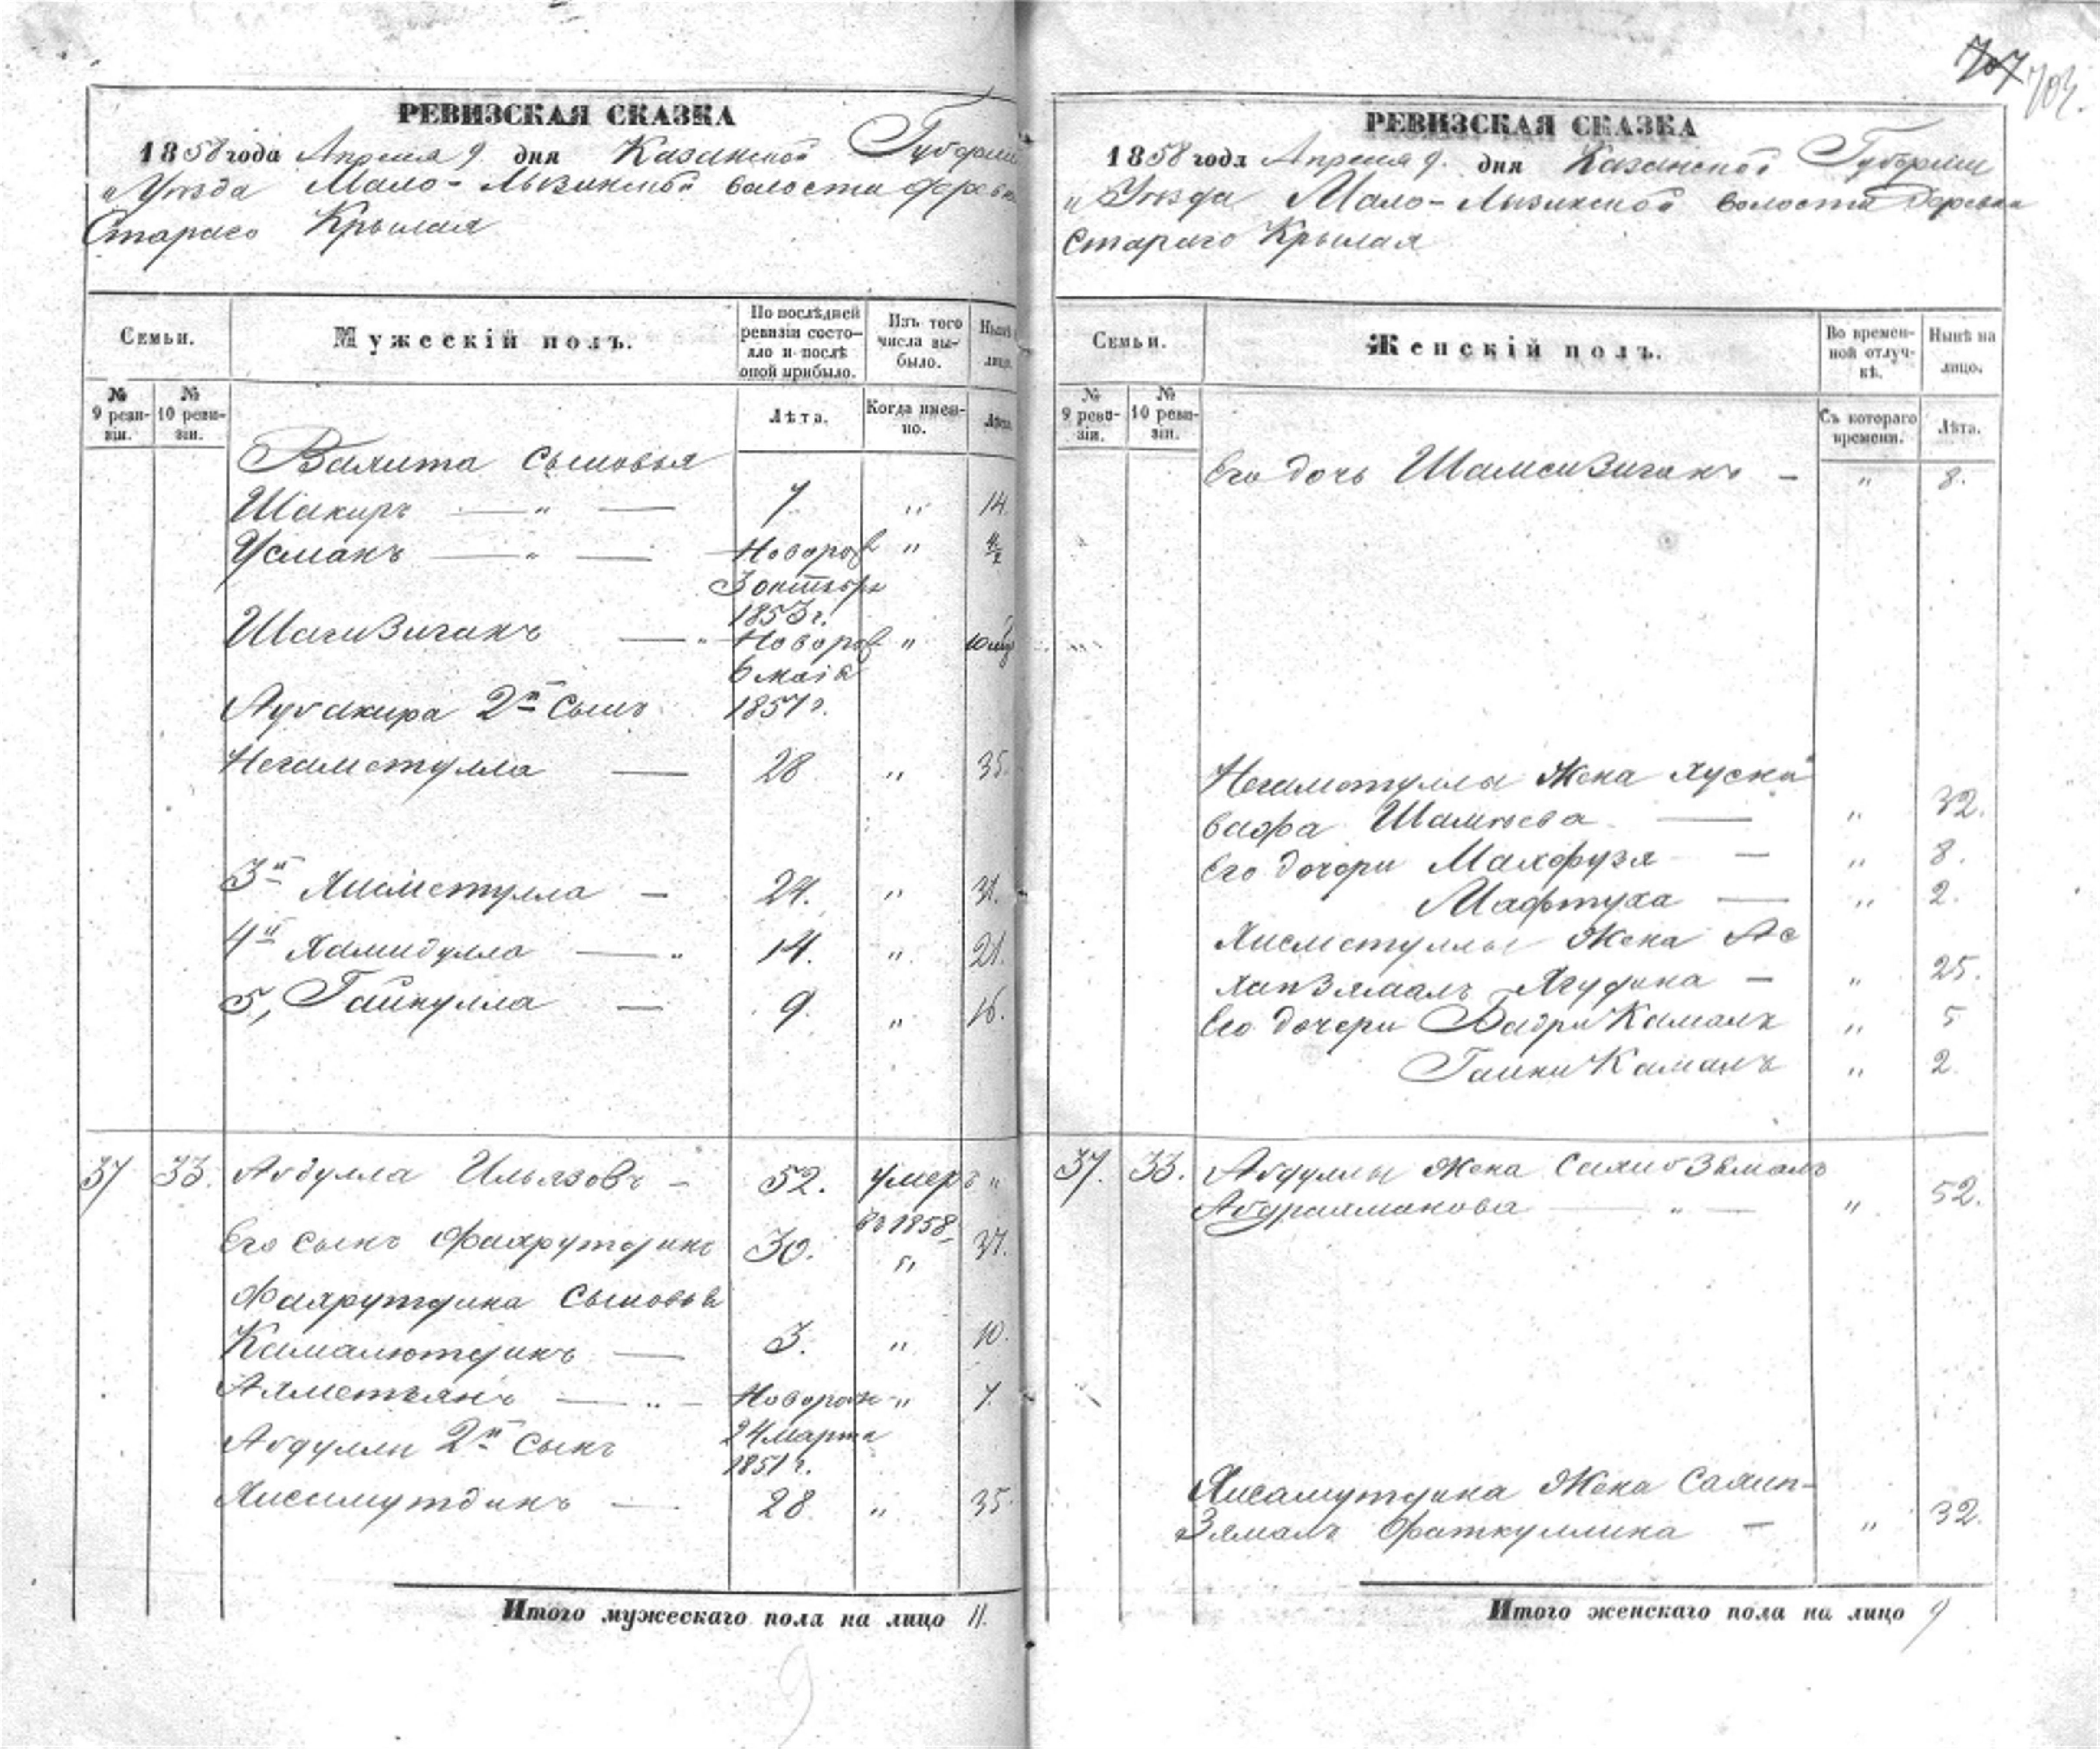 РЕВИЗСКАЯ СКАЗКА
1858 года Апреля 9. дня Казанской Губерніи
и Уѣзда Мало-Лызинской волости деревни
Стараго Крылая
Семьи.
Мужескій полъ.
По послѣдней ревизіи состояло и послѣ оной прибыло.
Изъ того числа выбыло.
Нынѣ лицо.
№ 9 ревизіи.
№ 10 ревизіи.
Лѣта.
Когда именно.
Лѣта.
Валита сыновья
Шакиръ — " — 7. " 14.
Усманъ — " — Новорож "
3 октября
1853 г.
Шагизиганъ — " Новорож "
6 маія
Аубакира 2й сынъ 1857 г.
Негаметулла — 28 " 35.
3й Хисметулла — 24. " 31.
4й Хамидулла — " 14. " 21.
5, Гайнулла — 9. " 16.
37 33. Абдулла Ильязовъ — 52. умеръ "
въ 1858
Его сынъ Фахрутдинъ 30. " 37.
Фахрутдина сыновья
Камалютдинъ — 3. " 10.
Ахметзянъ — " — Новорож " 7.
24 марта
Абдуллы 2й сынъ 1851 г.
Хисамутдинъ — 28 " 35.
Итого мужескаго пола на лицо 11.
707 703.
РЕВИЗСКАЯ СКАЗКА
1858 года Апреля 9. дня Казанской Губерніи
и Уѣзда Мало-Лызинской волости деревни
Стараго Крылая
Семьи.
Женскій полъ.
Во временной отлучкѣ.
Нынѣ на лицо.
№ 9 ревизіи.
№ 10 ревизіи.
Съ котораго времени.
Лѣта.
Его дочь Шамсизиганъ — " 8.
Негаметуллы жена Хусни
вафа — " 32.
Его дочери Махфузя — " 8.
Мафтуха — " 2.
Хисметуллы жена Ас
хапзямалъ Ягудина — " 25.
Его дочери Бадри Камалъ " 5
Гайни Камалъ " 2.
37. 33. Абдуллы жена Сахибзямалъ
Абдрахманова — " — " 52.
Хисамутдина жена Сахип-
зямалъ Фаткуллина — " 32.
Итого женскаго пола на лицо 9
9